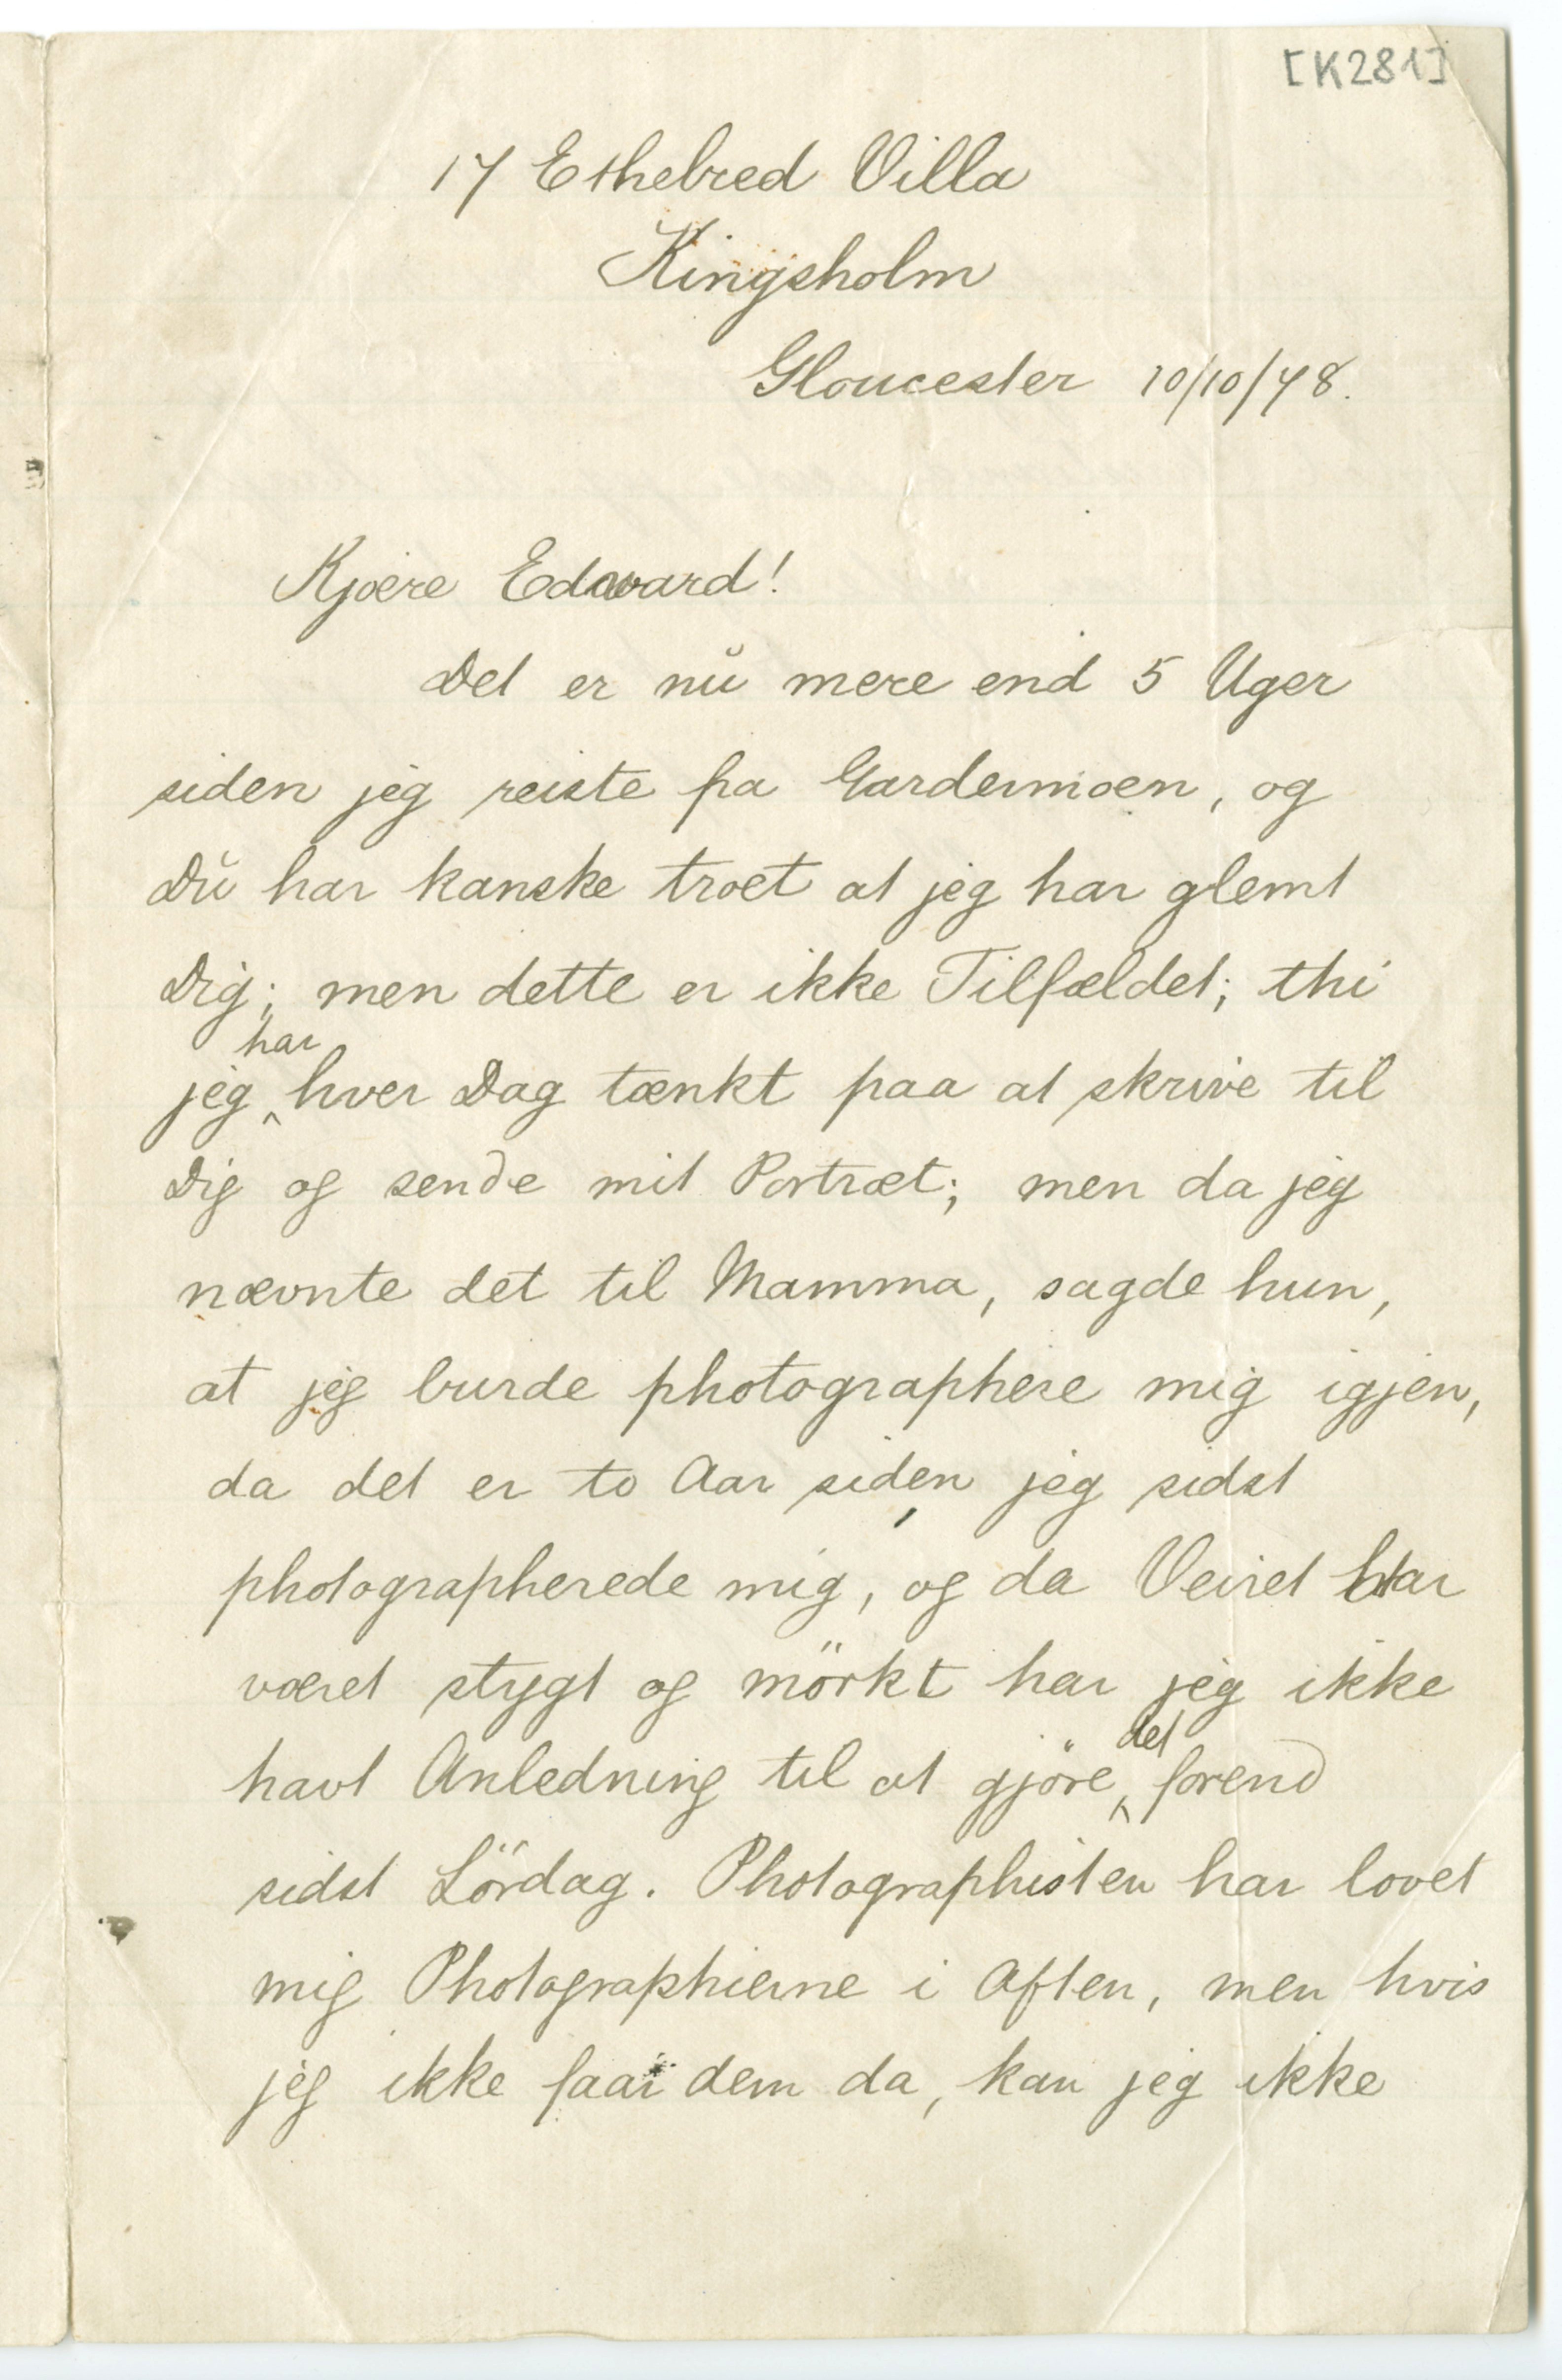 [K281]
17 Ethelred Villa
Kingsholm
Gloucester 10/10/78.
Kjære Edvard!
Det er nŭ mere end 5 Uger
siden jeg reiste fra Gardermoen, og
Dŭ har kanske troet at jeg har glemt
Dig; men dette er ikke Tilfældet; thi
har
jeg ‸ hver Dag tænkt paa at skrive til
Dig og sende mit Portræt; men da jeg
nævnte det til Mamma, sagde hun,
at jeg burde photographere mig igjen,
da det er to Aar siden jeg sidst
photographerede mig, og da Veiret har
været stygt og mörkt har jeg ikke
det
havt Anledning til at gjöre ‸ forend
sidst Lördag. Photographisten har lovet
mig Photographierne i Aften, men hvis
jeg ikke faar dem da, kan jeg ikke